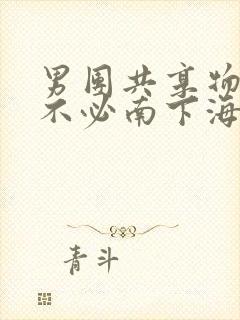 男团共享物
不必南下海
青斗